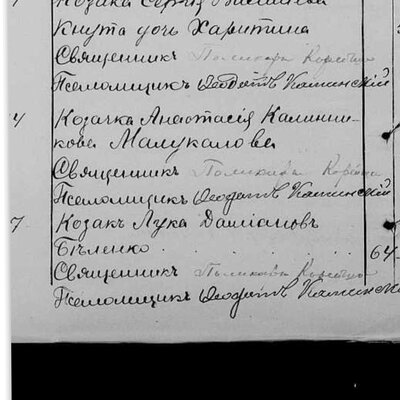 Козака Сергія
Кнута дочь Харитина
Священникъ Поликарпъ
Псаломщикъ Ѳеодотъ Каминскій
4 Козачка Анастасія Калинни-
кова Малуканова
Священникъ Поликарпъ
Псаломщикъ Ѳеодотъ Каминскій
7 Козакъ Лука Даміановъ
Бѣленко 64
Священникъ Поликарпъ
Псаломщикъ Ѳеодотъ Каминскі